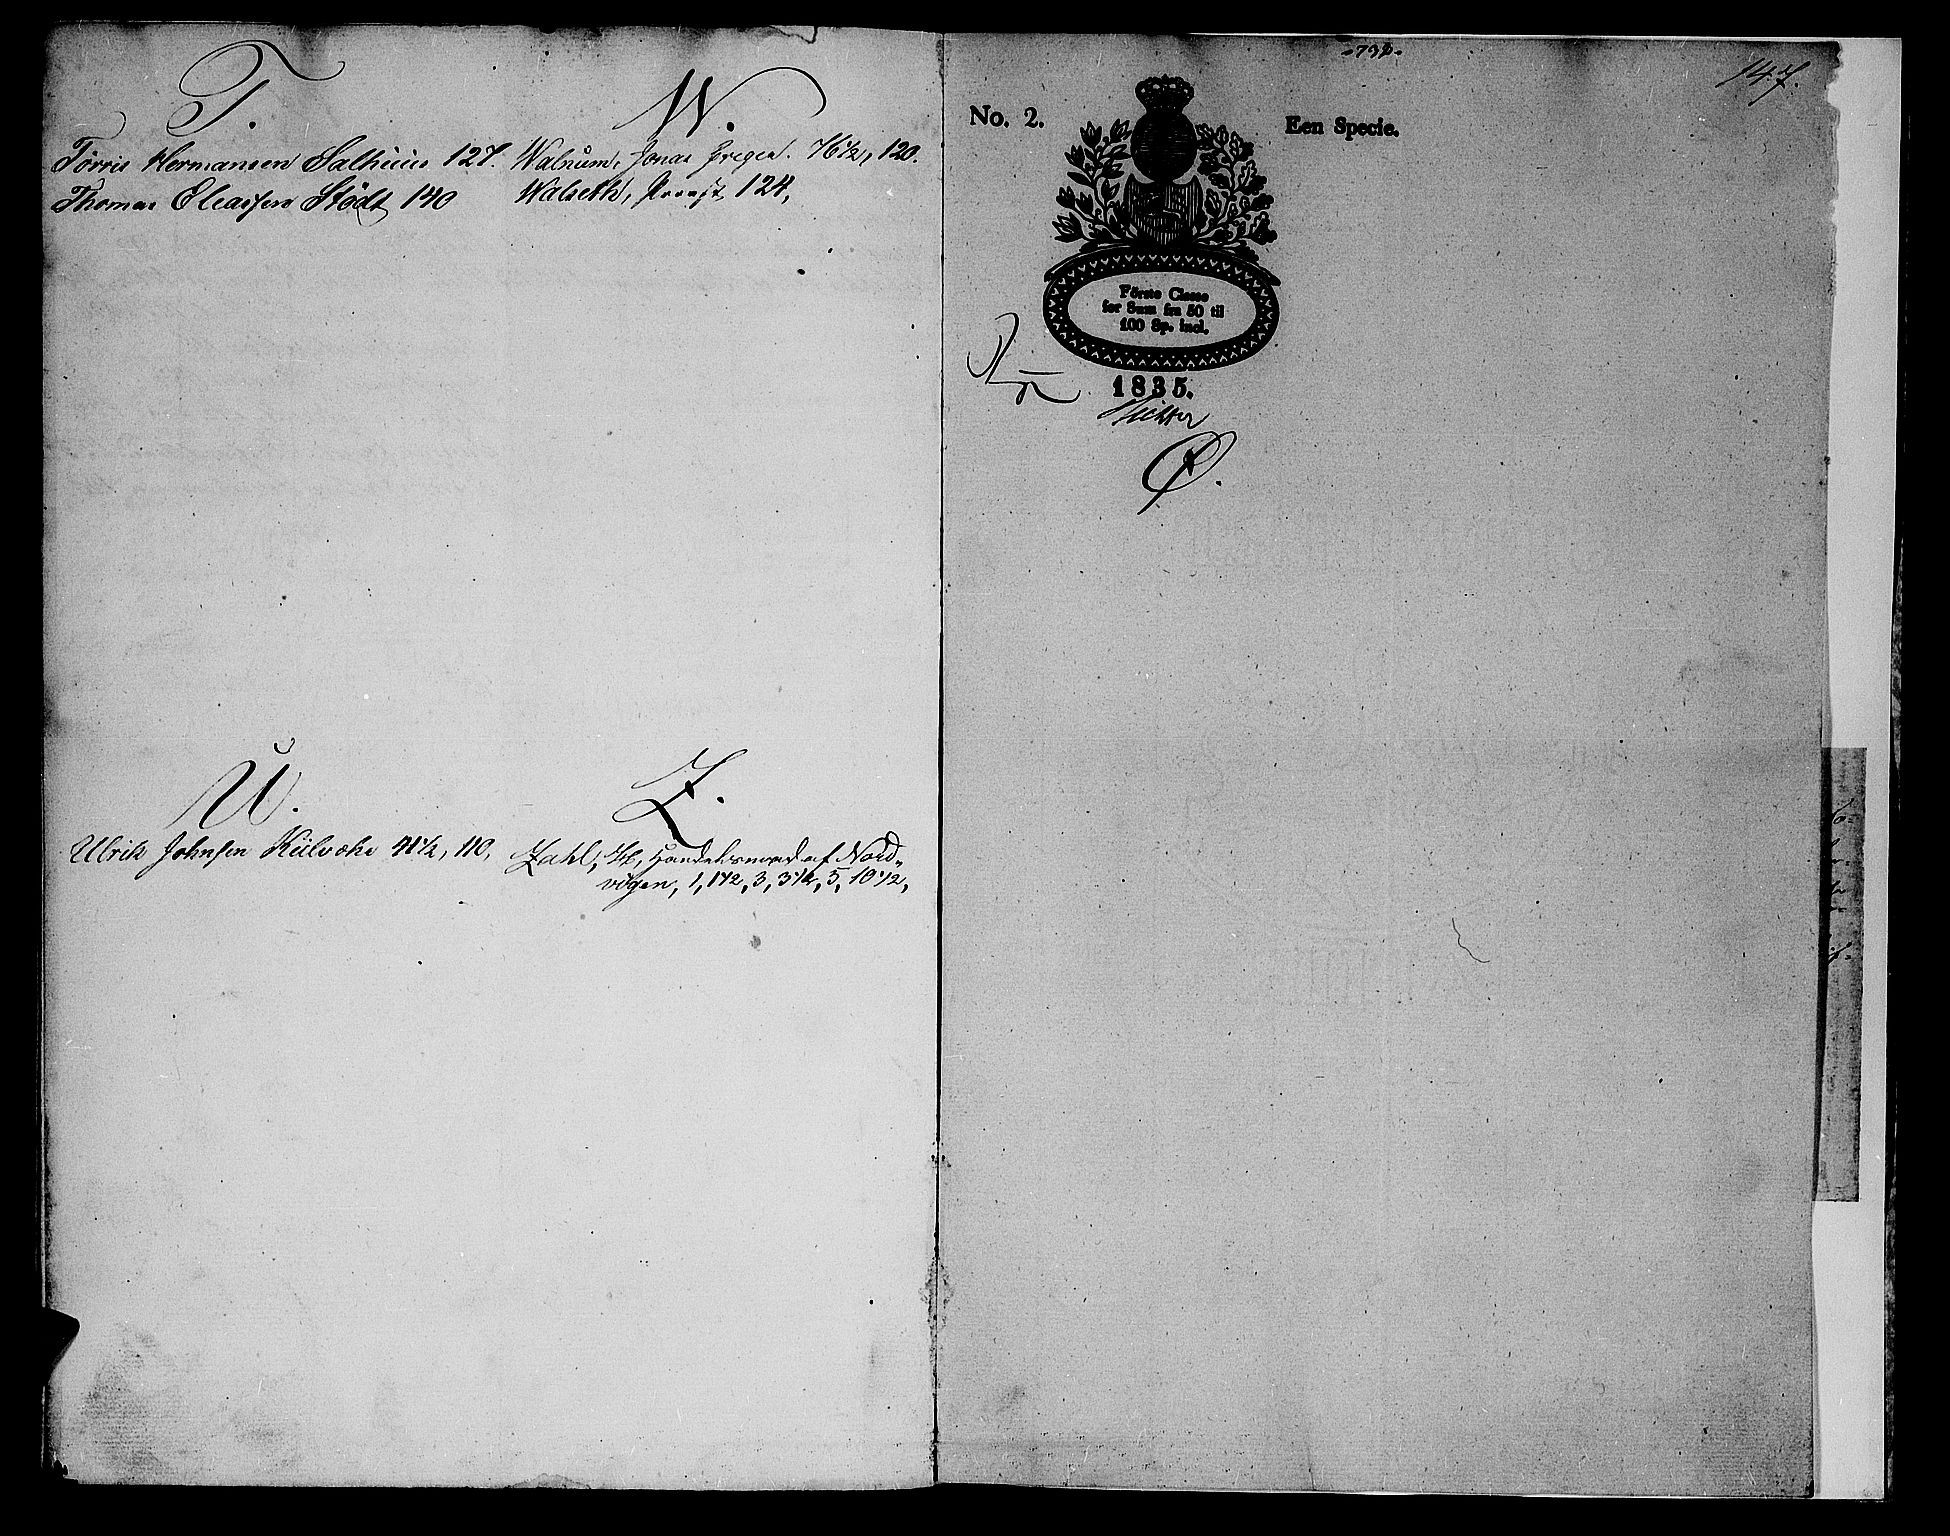 T.
Törris Hermansen Salhuus 127.
Thomas Eleassen Stödt 140
W.
Walnum, Jonas Greger. 76½, 120.
Walseth, Provst 124,
U.
Ulrik Johnsen 41½, 110,
Z.
Zahl, H, Handelsmand af Nord-
vigen, 1, 1½, 3, 3½, 5, 10½,
147.
No. 2.
Een Specie.
Förste Classe
for Sum fra 50 til
100 Sp. incl.
1835.
Ø.